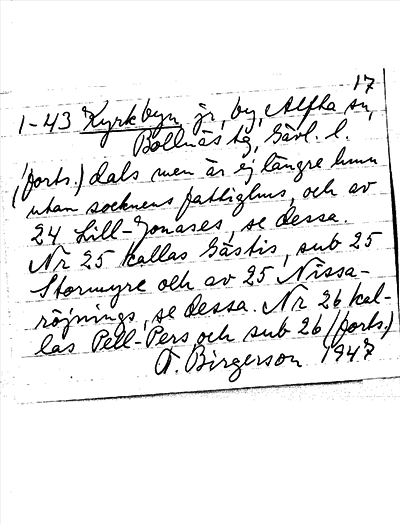 17
1-43 Kyrkbyn, jr, by, Alfta sn,
Bollnäs tg, Gävl. l.
(forts.) dals men är ej längre hmn
utan socknens fattighus, och av
24 Lill-Jonases, se dessa.
Nr 25 kallas Gästis, sub 25
Stormyre och av 25 Nissa-
röjnings, se dessa. Nr 26 kal-
las Pell-Pers och sub 26 (forts.)
T. Birgerson 1947